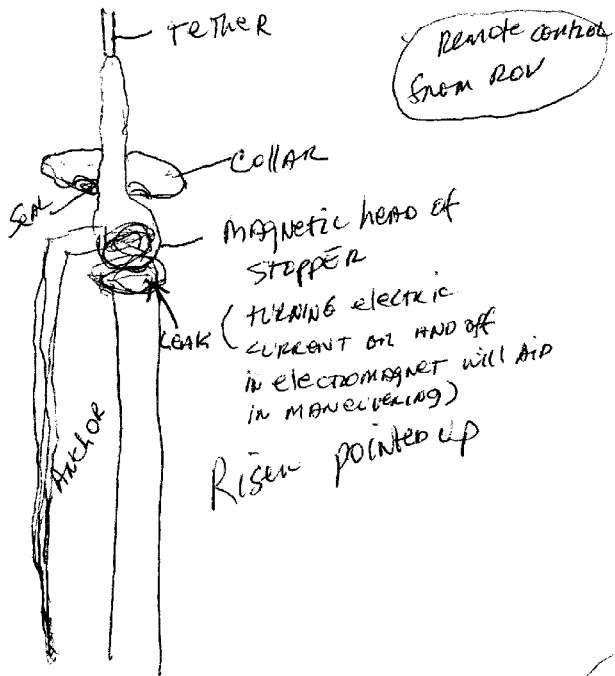 TETHER
Remote control
from ROV
COLLAR
SEAL
MAGNETIC head of
STOPPER
LEAK
(TURNING electric
CURRENT ON AND off
in electROMAGNET will AID
in MANEUVERING)
ANCHOR
Riser pointed up